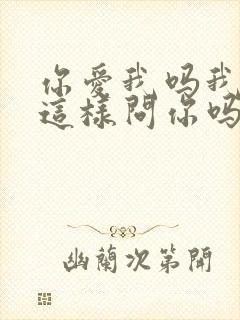 你愛我吗我
這樣問你吗
幽蘭次第開